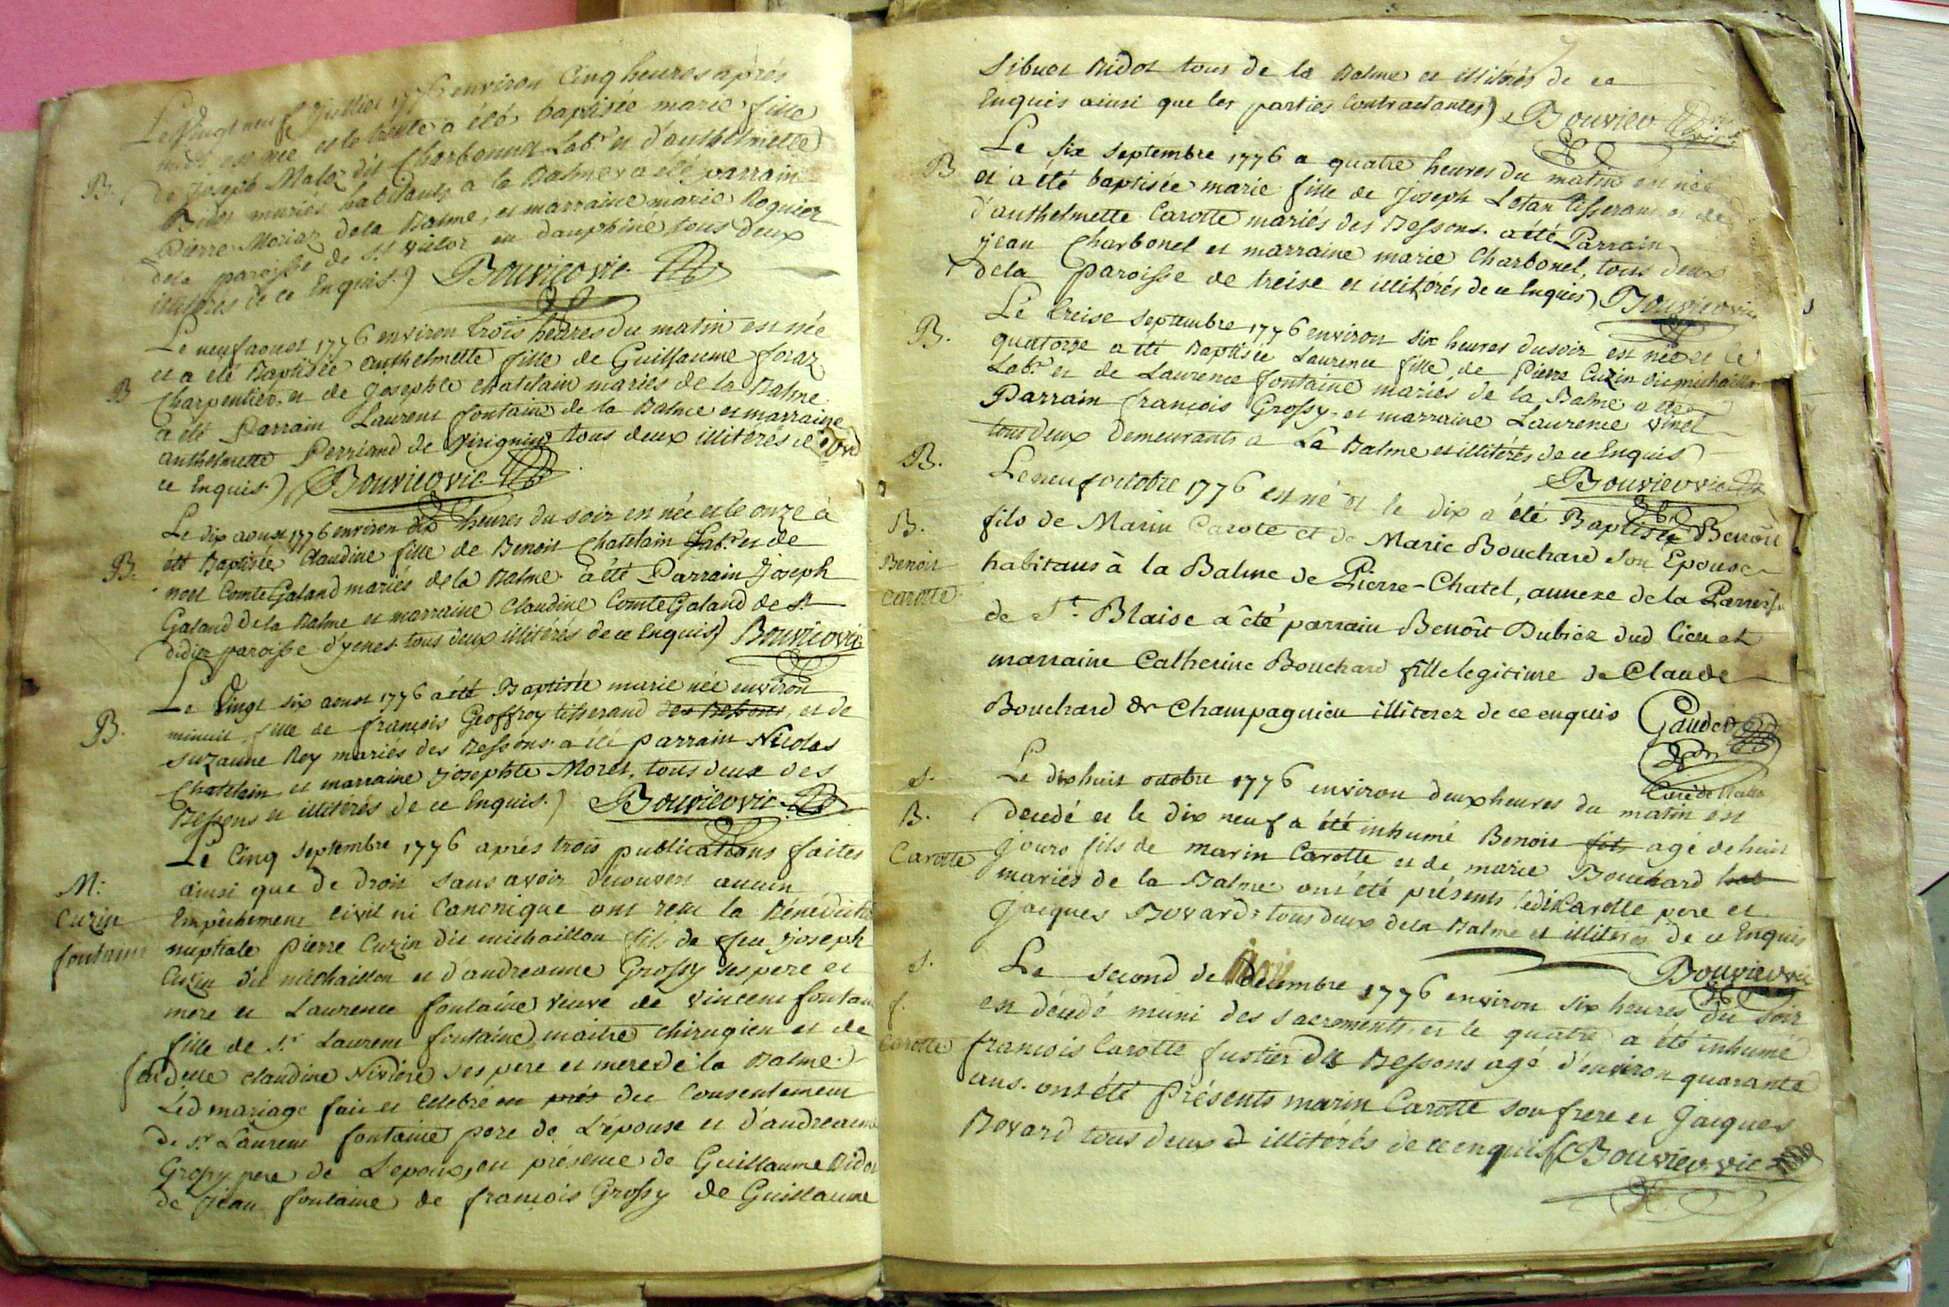 Le vingt neuf juillet 1776 environ Cinq heures après
midi est née et le trente a été baptisée marie fille
de Joseph Malo dit Charbonnel Lab.r et d'anthelmette
mariés habitants a la Balme a été parrain
Pierre de la Balme, et marraine marie Roquier
dela paroisse de S.t victor en dauphiné tous deux
illitérés de ce Enquis.) Bouvier vic
B.
Le neuf aoust 1776 environ trois heures du matin est née
et a été Baptisée anthelmette fille de Guillaume foraz
B
Charpentier et de josephte chatelain mariés de la Balme
a été Parrain Laurent fontaine de la Balme et marraine
anthelmette Perriand de virignin tous deux illitérés de
ce Enquis.) Bouvier vic
Le dix aoust 1776 environ dix heures du soir est née et le onze à
B.
été Baptisée Claudine fille de Benoit Chatelain Lab.r et de
Comte Galand mariés de la Balme a été Parrain Joseph
Galand de la Balme et marraine Claudine Comte Galand de St
didier paroisse d'yenes tous deux illitérés de ce Enquis) Bouvier vic
Le vingt six aoust 1776 a été Baptisée marie née environ
B.
minuit, fille de françois Geoffroy tisserand des Bessons, et de
suzanne Rey mariés des Bessons a été parrain Nicolas
Chatelain et marraine josephte Moret, tous deux des
Bessons et illitérés de ce Enquis.) Bouvier vic
Le Cinq septembre 1776 après trois publications faites
M:
Cuzin
fontaine
ainsi que de droit sans avoir decouvert aucun
Empêchement Civil ni Canonique ont reçu la Bénédiction
nuptiale Pierre Cuzin dit michaillon fils de feu joseph
Cuzin dit michaillon et d'andreanne Grossy ses pere et
mere et Laurence fontaine veuve de vincent fontaine
fille de S.r Laurent fontaine maitre chirugien et de
feu delle claudine Nivière ses pere et mere de la Balme.
Led mariage fait et célébré en prés du Consentement
de S.r Laurent fontaine pere de L'épouse et d'andreanne
Grossy pere de L'epoux, en présence de Guillaume Bidot
de jean fontaine de françois Grossy de Guillaume
Sibuet Bidot tous de la Balme et illitérés de ce
Enquis ainsi que les parties Contractantes) Bouvier vic
Le six septembre 1776 a quatre heures du matin est née
B
et a été baptisée marie fille de Joseph Lotan tisserans et de
d'anthelmette Carotte mariés des Bessons. a été Parrain
jean Charbonel et marraine marie Charbonel, tous deux
de la Paroisse de treise et illitérés de ce Enquis) Bouvier vic
Le treise septembre 1776 environ six heures du soir est née et le
B.
quatorze a été Baptisée Laurence fille de Pierre Cuzin dit michaillon
Lab.r et de Laurence fontaine mariés de la Balme a été
Parrain françois Grossy, et marraine Laurence vinet
tous deux demeurants a La Balme et illitérés de ce Enquis)
Bouvier vic
B.
Le neuf octobre 1776 est né et le dix a été Baptisé Benoît
B.
Benoit
Carotte
fils de Marin Carote et de Marie Bouchard son Epouse
habitans à la Balme de Pierre-Chatel, annexe de la Parroisse
de S.t Blaise a êté parrain Benoît Dubiez dud lieu et
marraine Catherine Bouchard fille legitime de Claude
Bouchard de Champagnieu illiterez de ce enquis Gaudet
Le dix huit octobre 1776 environ deux heures du matin est
s.
B.
Carotte
decedé et le dix neuf a été inhumé Benoit fils agé de huit
jours fils de marin Carotte et de marie Bouchard
mariés de la Balme ont été présents ledit Carotte pere et
jacques Bovard tous deux de la Balme et illitérés de ce Enquis
Bouvier vic
Le second de decembre 1776 environ six heures du soir
s.
f.
Carotte
est décédé muni des sacrements et le quatre a été inhumé
francois Carotte fustier des Bessons agé d'environ quarante
ans. ont été Présents marin Carotte son frere et Jacques
Bovard tous deux illitérés de ce enquis Bouvier vic